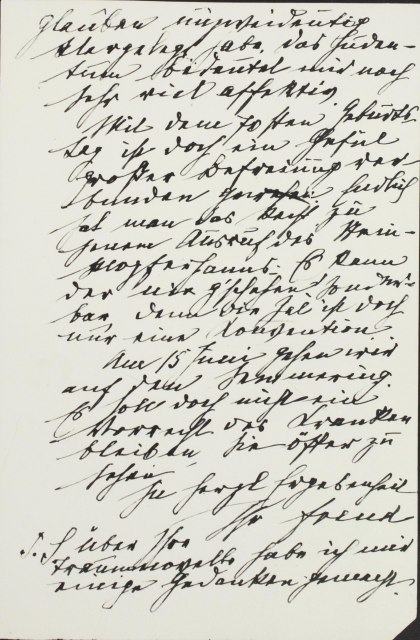 Glauben unzweideutig
klargelegt habe, das Juden-
tum bedeutet mir noch
sehr viel affektiv.
Mit dem 70sten Geburts
tag ist doch ein Gefül
großer Befreiung ver
bunden Endlich
hat man das Recht zu
jenem Ausruf des Stein-
klopferhanns: Es kann
dir nix g'schehen
denn die Zal ist doch
nur eine Konvention
Am 15 Juni gehen wir
auf den Semmering.
Es soll doch nicht ein
Vorrecht des Kranken
bleiben, Sie öfter zu
sehen
In herzl Ergebenheit
Ihr Freud
P.S. Über Ihre
Traumnovelle habe ich mir
einige Gedanken gemacht.